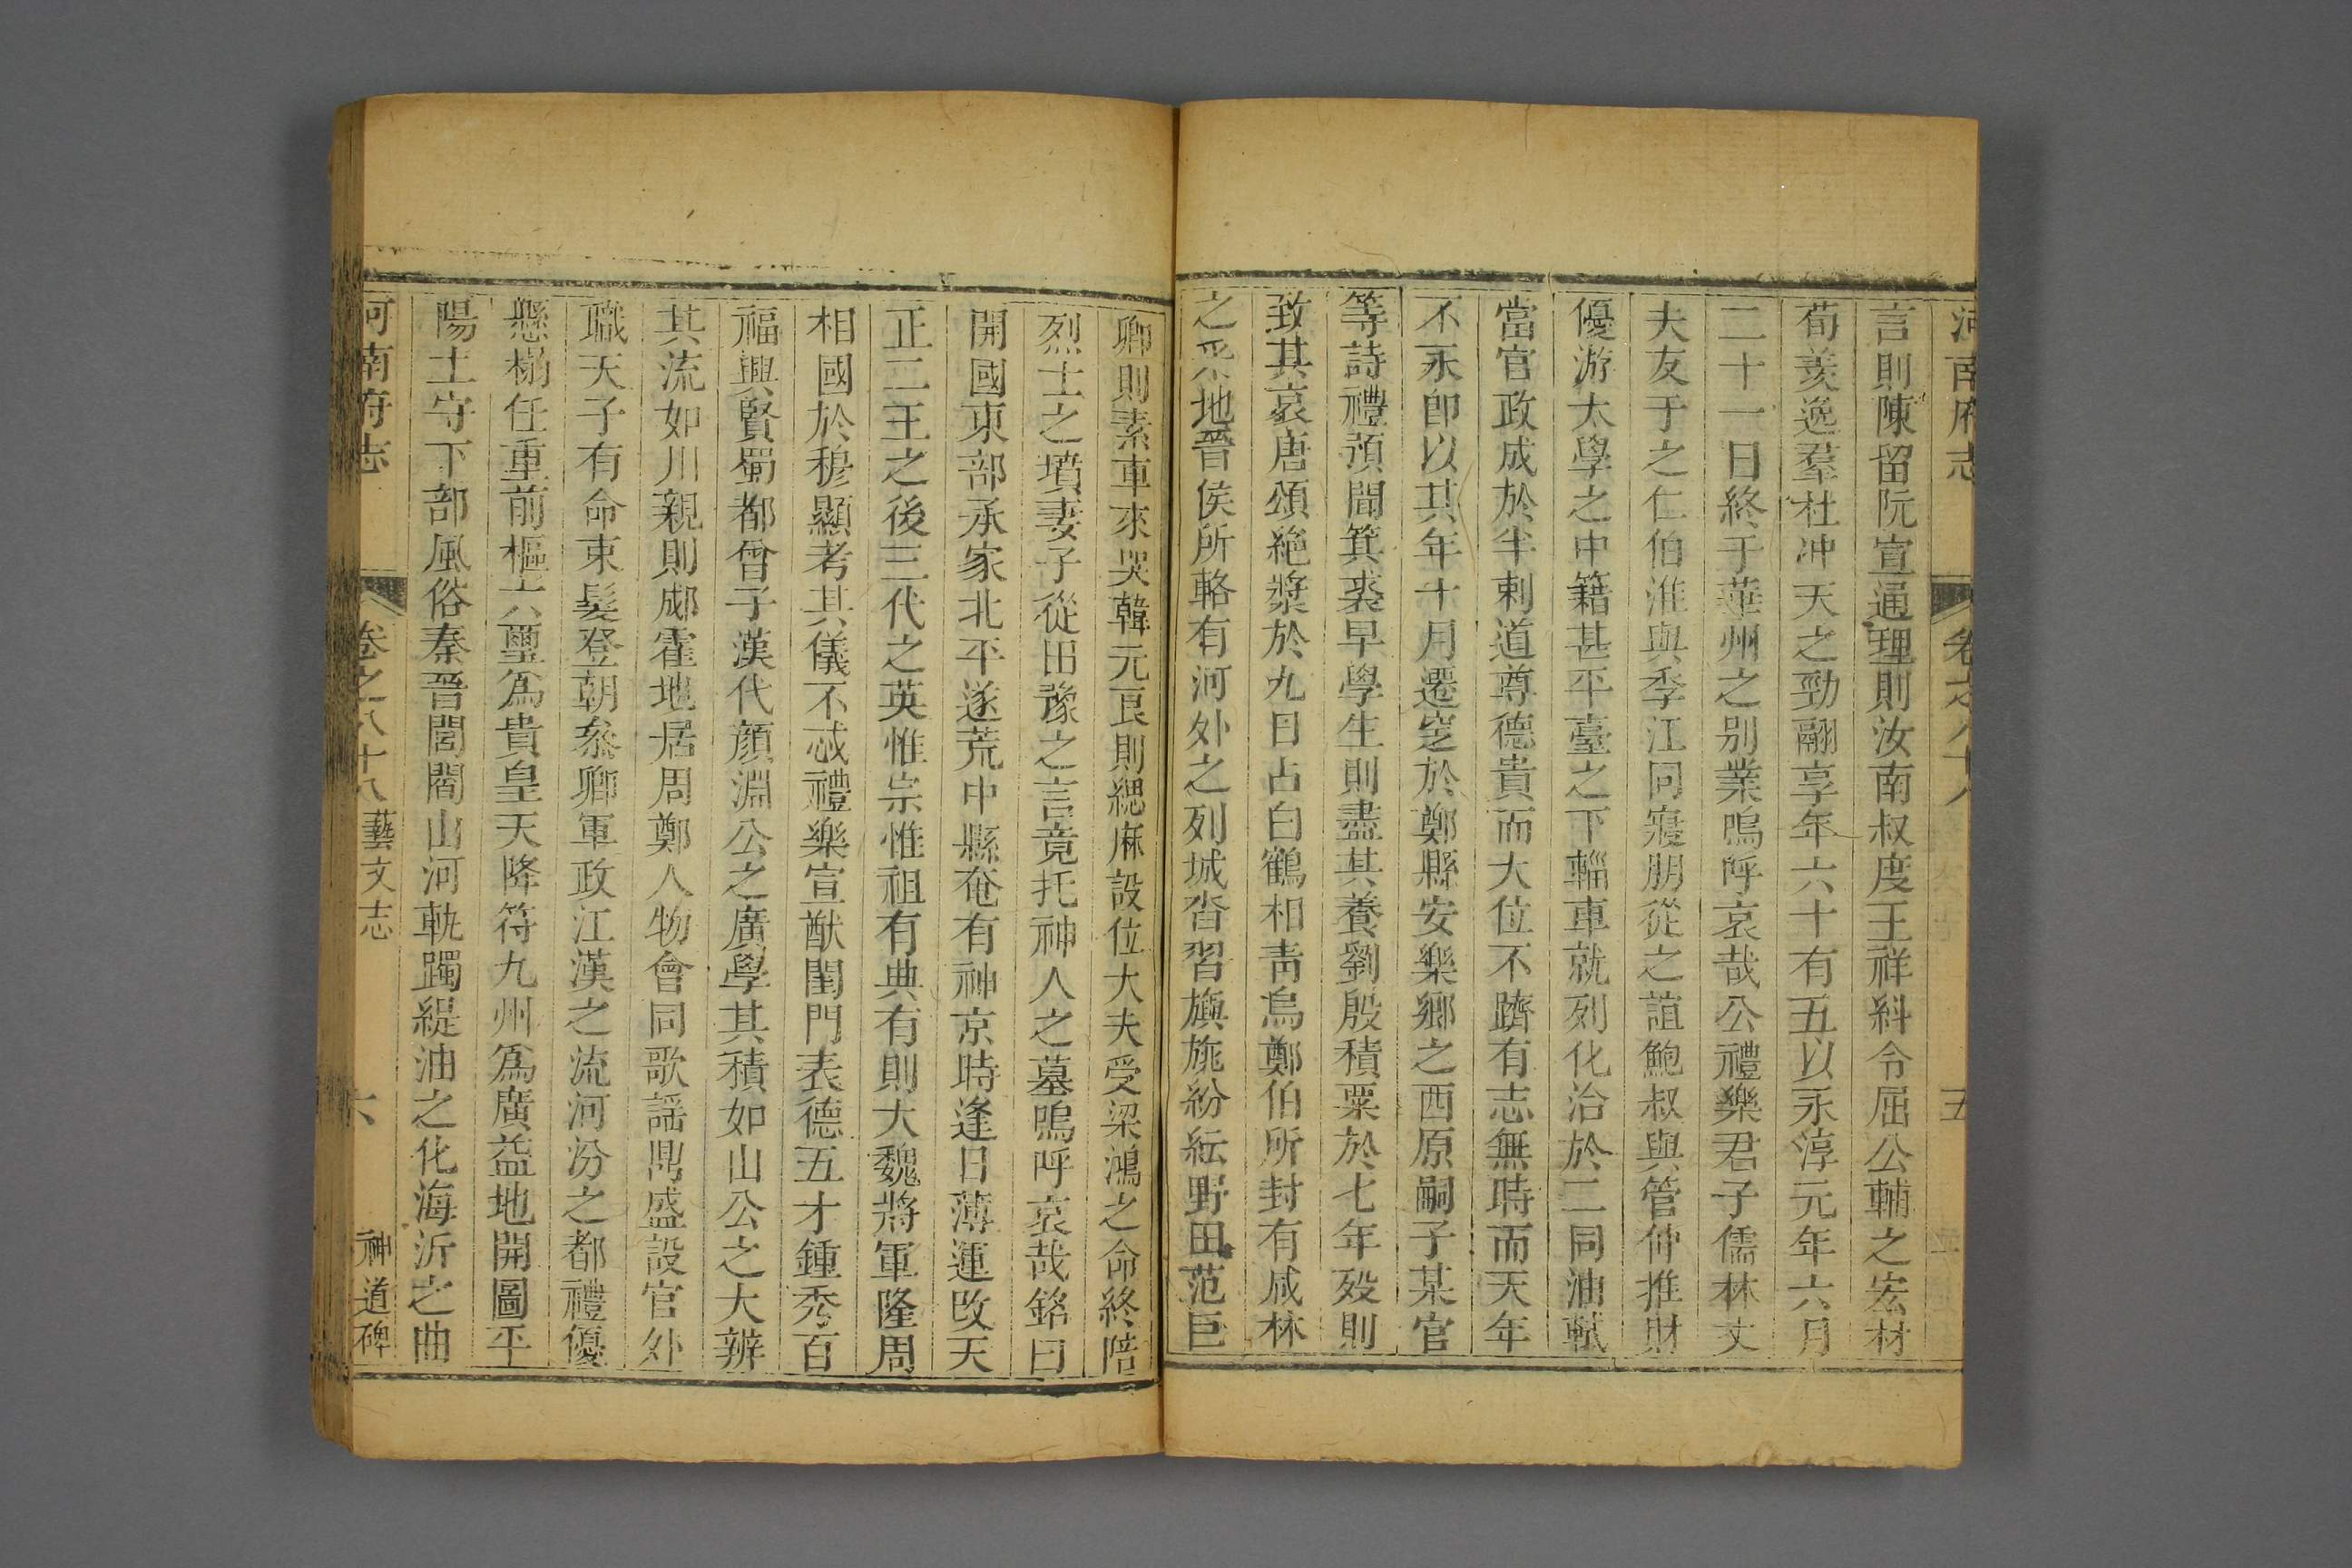 河南府志 卷之八十八 五
言則陳留阮宣通理則汝南叔度王祥糾令屈公輔之宏材
荀羨逸羣杜冲天之勁翮享年六十有五以永淳元年六月
二十一日終于華州之别業嗚呼哀哉公禮樂君子儒林丈
夫友于之仁伯淮與季江同寢朋從之誼鮑叔與管仲推財
優游太學之中籍甚平臺之下輜車就列化洽於二同油軾
當官政成於半刺道尊德貴而大位不躋有志無時而天年
不永即以其年十月遷窆於鄭縣安樂鄉之西原嗣子某官
等詩禮預聞箕裘早學生則盡其養劉殷積粟於七年殁則
致其哀唐頌絶漿於九日占白鶴相靑烏鄭伯所封有咸林
之采地晉侯所賂有河外之列城沓習旟旐紛紜野田范巨
卿則素車來哭韓元良則緦麻設位大夫受梁鴻之命終陪
烈士之墳妻子從田豫之言竟托神人之墓嗚呼哀哉銘曰
開國東部承家北平遂荒中縣奄有神京時逢日薄運改天
正二王之後三代之英惟宗惟祖有典有則大魏將軍隆周
相國於穆顯考其儀不忒禮樂宣猷閨門表德五才鍾秀百
福興賢蜀都曾子漢代顔淵公之廣學其積如山公之大辨
其流如川親則郕霍地居周鄭人物會同歌謡鼎盛設官外
職天子有命束髮登朝叅卿軍政江漢之流河汾之都禮優
懸榻任重前樞六璽爲貴皇天降符九州爲廣益地開圖平
陽土守下部風俗秦晉閭閻山河軌躅緹油之化海沂之曲
河南府志 卷之八十八 藝文志 六 神道碑